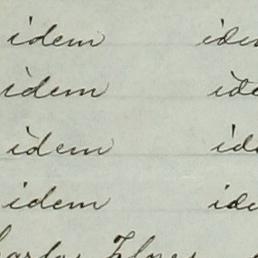 idem idem
idem idem
idem idem
idem idem
Carlos Flores